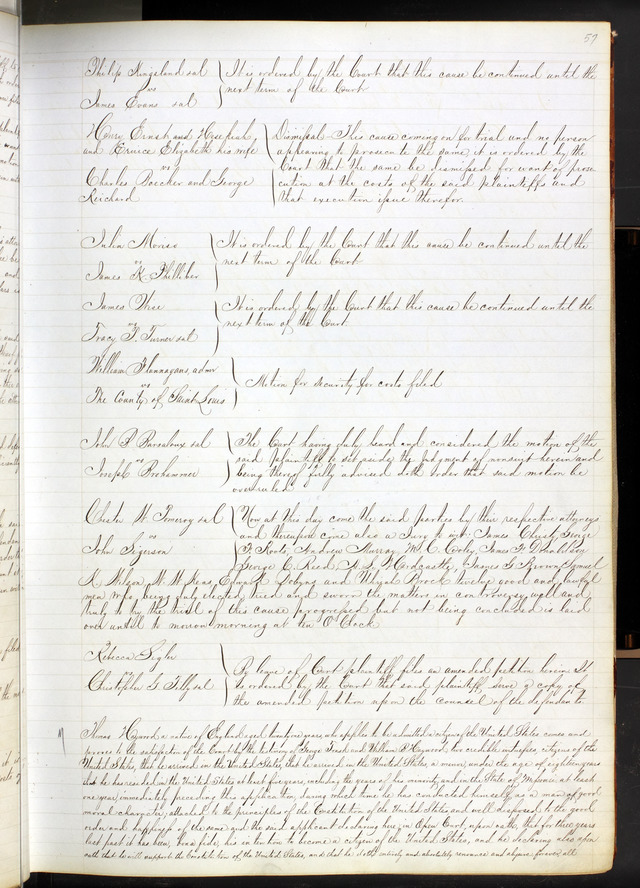 57
Philip Kingsland et al } It is ordered by the Court that this cause be continued until the
vs
next term of the Court
James Evans et al
Henry Ernst and
and Elizabeth his wife
vs
Charles Boecher and George
Dismissal This cause coming on for trial and no person
appearing to prosecute the same, it is ordered by the
Court that the same be dismissed for want of prose
cution at the costs of the said plaintiffs and
that execution issue therefor.
Julia
vs
James K.
It is ordered by the Court that this cause be continued until the
next term of the Court
James Wise
vs
Tracy P. Turner et al
It is ordered by the Court that this cause be continued until the
next term of the Court
William Flannagans, admr
vs
The County of Saint Louis
Motion for security for costs filed
John B. et al
vs
Joseph
The Court having duly heard and considered the motion of the
said plaintiff to set aside the judgment of nonsuit herein and
being thereof fully advised doth order that said motion be
overruled
Chester W. Pomeroy et al
vs
John Sigerson
Now at this day come the said parties by their respective attorneys
and thereupon come also a Jury to wit: James Christy, George
F. Root, Andrew Murray, C. Cooley, James F. Donaldson
George C. Reed, Hardcastle, James G. Brown, Samuel
K. Wilson, W. W. Edward and Brock twelve good and lawful
men who being duly elected, tried and sworn the matters in controversy well and
truly to try the trial of this cause progressed but not being concluded is laid
over until to morrow morning at ten O'Clock
Rebecca
vs
Christopher G. et al
By leave of Court plaintiff files an amended petition herein It
is ordered by the Court that said plaintiff serve a copy of
the amended petition upon the counsel of the defendants
Thomas a native of England aged twenty years who applies to be admitted a citizen of the United States comes and
proves to the satisfaction of the Court by the testimony of George and William two credible witnesses, citizens of the
United States, that he arrived in the United States, that he arrived in the United States, a minor, under the age of eighteen years
that he has resided in the United States at least five years, including the years of his minority, and in the State of Missouri at least
one year, immediately preceding this application, during which time he has conducted himself as a man of good
moral character, attached to the principles of the Constitution of the United States and well disposed to the good
order and happiness of the same and the said applicant declaring here in Open Court, upon oath, that for three years
last past it has been, bona fide, his intention to become a citizen of the United States, and he declaring also upon
oath that he will support the Constitution of the United States, and that he doth entirely and absolutely renounce and abjure forever all